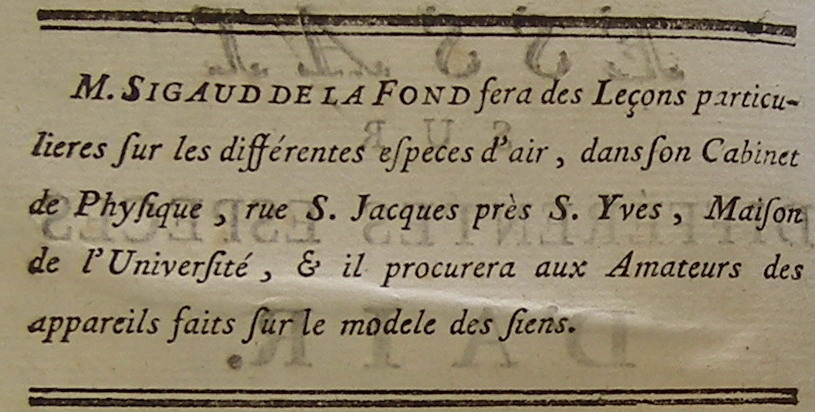 M. SIGAUD DE LA FOND ſera des Leçons particu-
lieres ſur les différentes eſpeces d'air, dans ſon Cabinet
de Phyſique, rue S. Jacques près S. Yves, Maiſon
de l'Univerſité, & il procurera aux Amateurs des
appareils faits ſur le modele des ſiens.